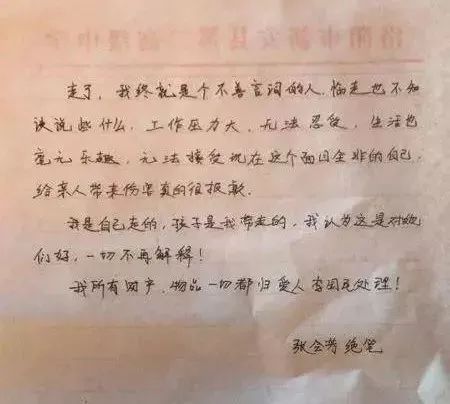 走了，我终就是个不善言词的人，临走也不知
该说些什么，工作压力大，无法忍受，生活也
毫无乐趣，无法接受现在这个面目全非的自己，
给亲人带来伤害真的很抱歉．
我是自己走的，孩子是我带走的，我认为这是对她
们好，一切不再解释！
我所有财产、物品一切都归爱人处理！
张会芳 绝笔